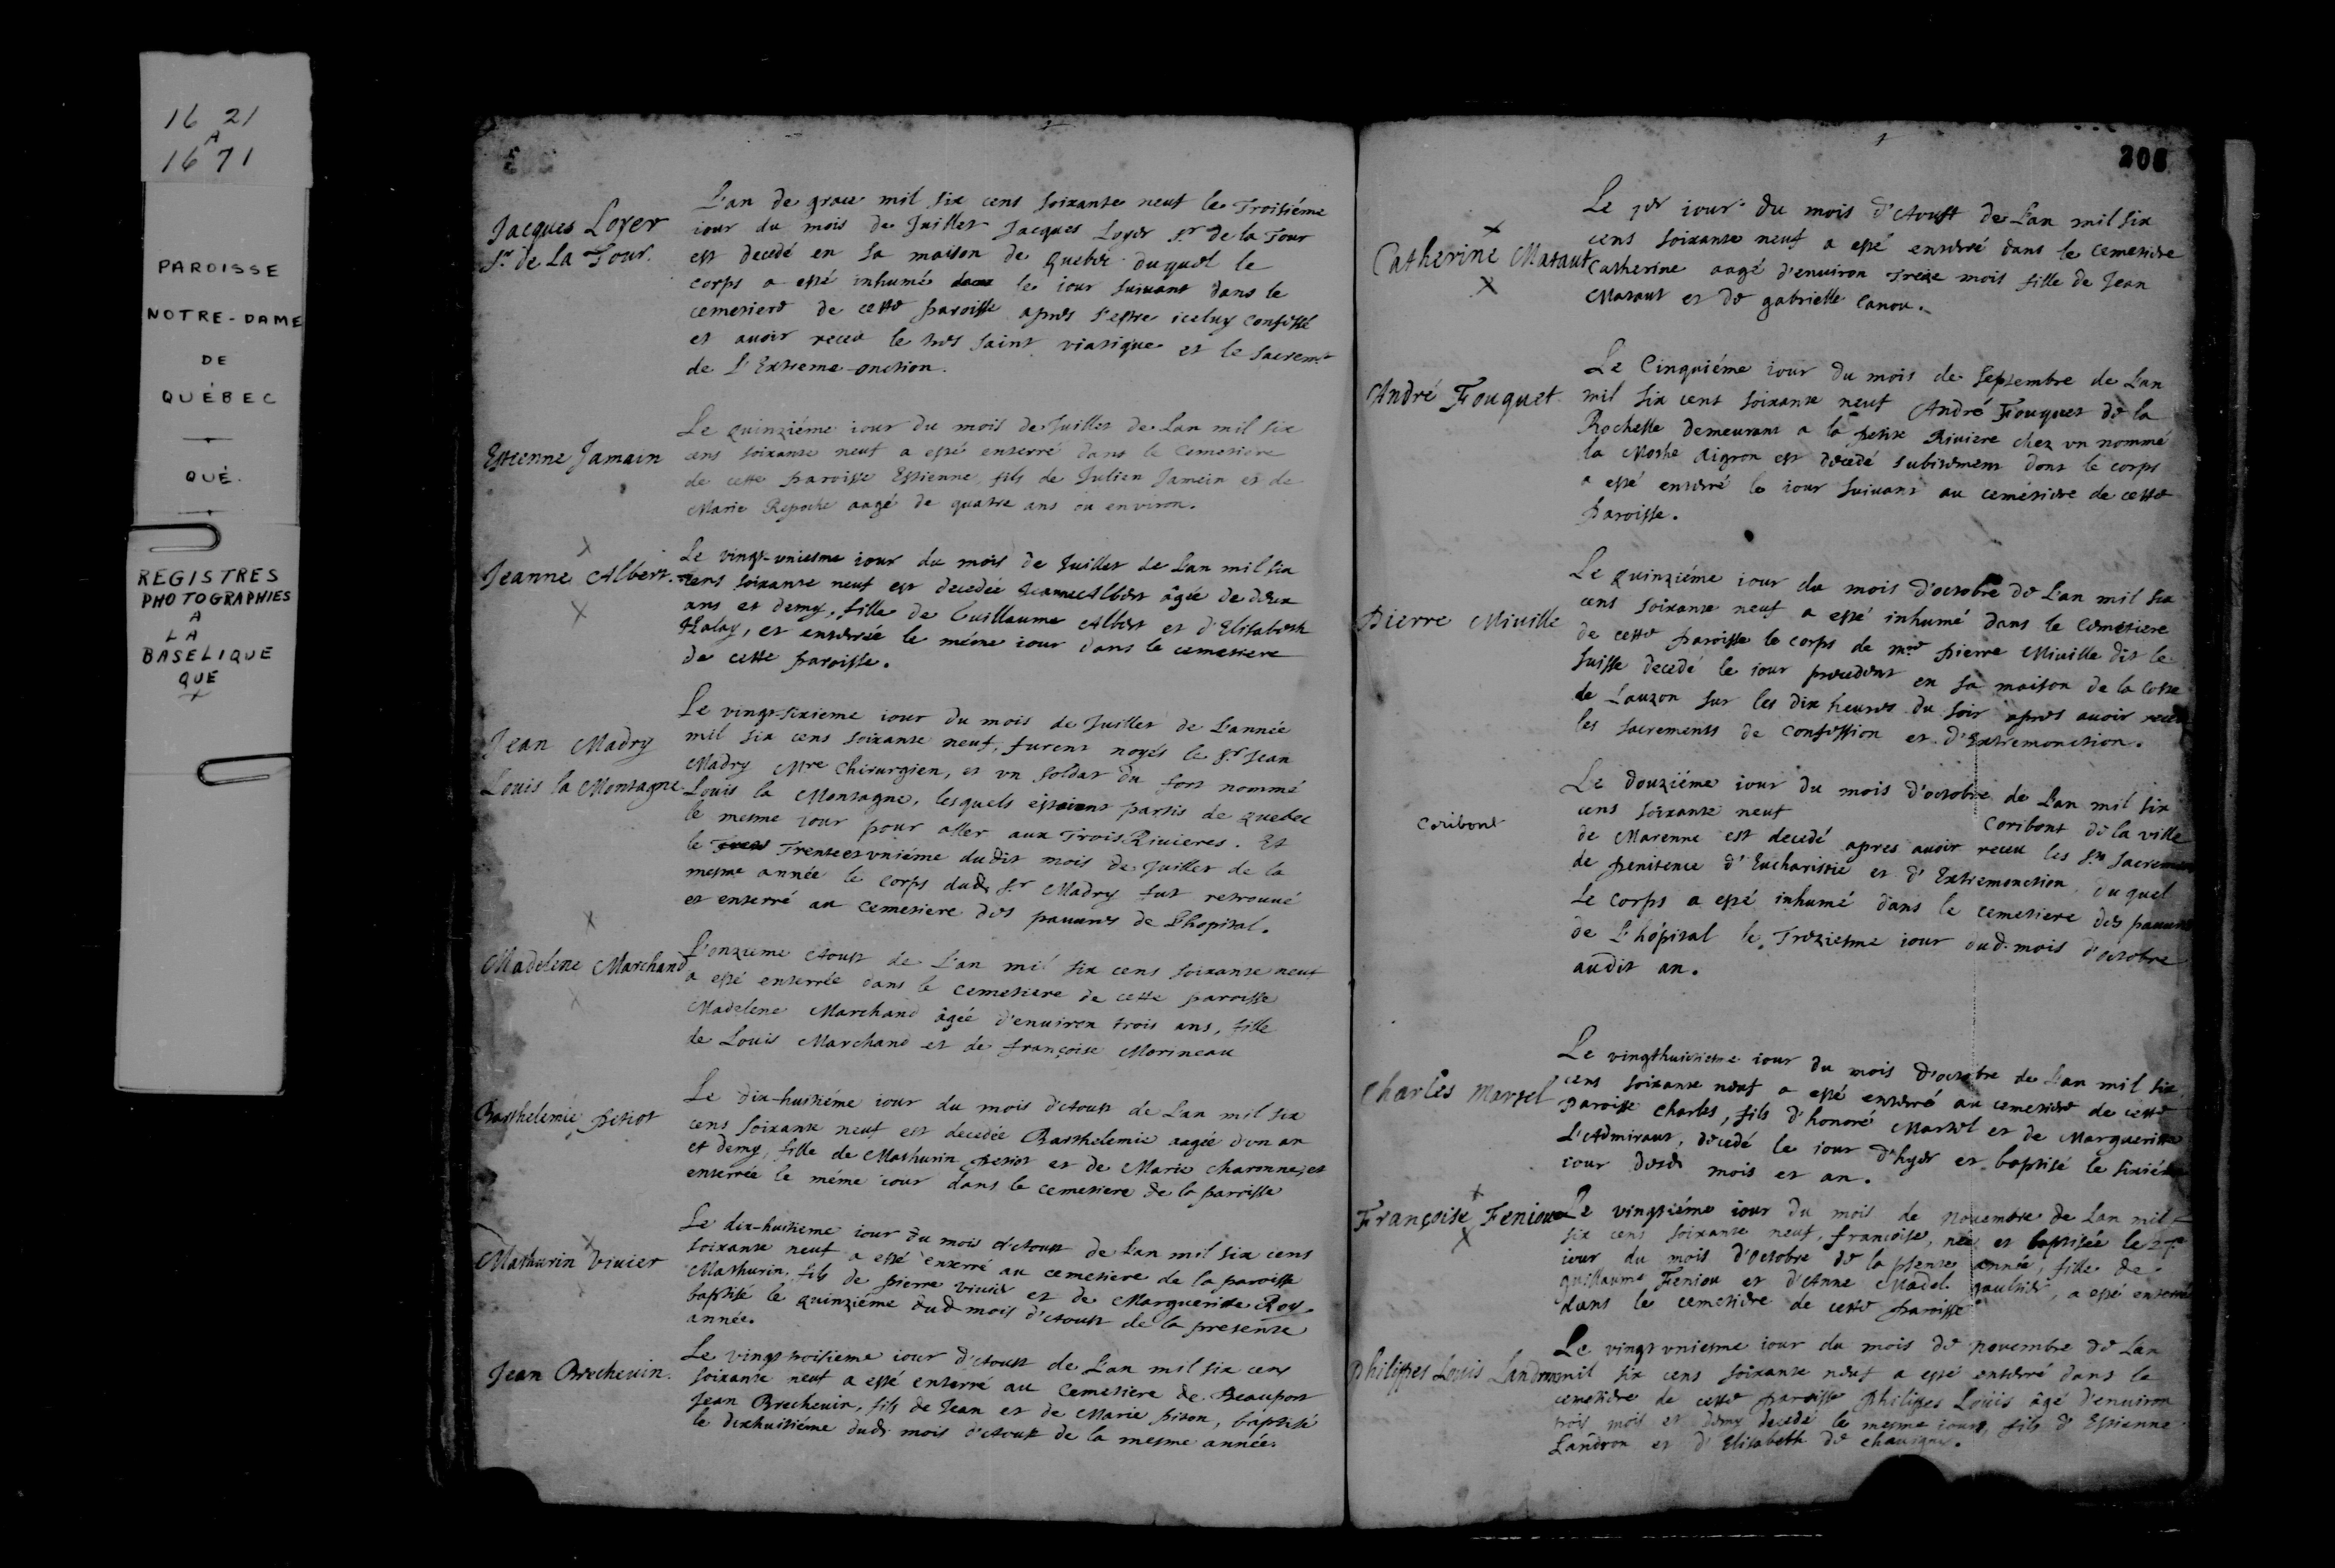 16 21
A
16 71
PAROISSE
NOTRE-DAME
DE
QUÉBEC
QUÉ.
REGISTRES
PHOTOGRAPHIES
A
LA
BASELIQUE
QUE
Jacques Loyer
Sr. de La Tour.
L'an de grace mil six cens soixante neuf le Troisiéme
iour du mois de Juillet Jacques Loyer Sr. de la Tour
est decedé en sa maison de Quebec duquel le
corps a esté inhumé dans le iour suiuant dans le
cemetiere de cette paroisse apres s'estre iceluy confessé
et auoir receu le tres saint viatique et le sacremt
de L'Extreme-onction.
Estienne Jamain
Le quinziéme iour du mois de Juillet de Lan mil six
cens soixante neuf a esté enterré dans le Cemetiere
de cette paroisse Estienne fils de Julien Jamein et de
Marie Repoche aagé de quatre ans ou environ.
Jeanne Albert.
Le vingt-uniesme iour du mois de Juillet de Lan mil six
cens soixante neuf est decedée Jeanne Albert âgée de deux
ans et demy, fille de Guillaume Albert et d'Elisabeth
Halay, et enterrée le méme iour dans le cemetiere
de cette paroisse.
Jean Madry
Louis la Montagne
Le vingt-sixieme iour du mois de Juillet de L'année
mil six cens soixante neuf, furent noyés le Sr. Jean
Madry Mre Chirurgien, et vn soldat du fort nommé
Louis la Montagne, lesquels estoient partis de Quebec
le mesme iour pour aller aux Trois Riuieres. Et
le Trente et vniéme dudit mois de Juillet de la
mesme année le corps dud. Sr Madry fut retrouué
et enterré au cemetiere des pauures de L'hopital.
Madelene Marchand
L'onzieme Aoust de L'an mil six cens soixante neuf
a esté enterrée dans le cemetiere de cette paroisse
Madelene Marchand âgée d'enuiron trois ans, fille
de Louis Marchand et de françoise Morineau
Barthelemie petiot
Le dix-huitiéme iour du mois d'Aoust de Lan mil six
cens soixante neuf est decedée Barthelemie aagée d'vn an
et demy, fille de Mathurin petiot et de Marie charonne, et
enterrée le méme iour dans le cemetiere de la paroisse
Mathurin Viuier
Le dix-huitieme iour du mois d'Aoust de Lan mil six cens
soixante neuf a esté enterré au cemetiere de la paroisse
Mathurin, fils de pierre viuier et de Marguerite Roy,
baptisé le quinziéme dud. mois d'Aoust de la presente
année.
Jean Brecheuin.
Le vingt-troisieme iour d'Aoust de L'an mil six cens
soixante neuf a esté enterré au Cemetiere de Beauport
Jean Brecheuin, fils de Jean et de Marie piton, baptisé
le dixhuitiéme dud. mois d'Aoust de la mesme année.
Catherine Mataut
Le 1er iour du mois d'Aoust de L'an mil six
cens soixante neuf a esté enterré dans le cemetiere
Catherine aagé d'enuiron treize mois fille de Jean
Mataut et de gabrielle Canou.
André Fouquet
Le Cinquiéme iour du mois de Septembre de Lan
mil six cens soixante neuf André Fouquet de la
Rochelle demeurant a la petite Riuiere chez vn nommé
la Mothe Aigron est decedé subitement dont le corps
a esté enterré le iour suiuant au cemétiere de cette
paroisse.
Pierre Miuille
Le quinziéme iour du mois d'octobre de L'an mil six
cens soixante neuf a esté inhumé dans le Cemetiere
de cette paroisse le corps de mre pierre Miuille dit le
suisse decedé le iour precedent en sa maison de la coste
de Lauzon sur les dix heures du soir apres auoir receu
les sacrements de confession et d'Extremonction.
Coribont
Le douziéme iour du mois d'octobre de L'an mil six
cens soixante neuf Coribont de la ville
de Marenne est decedé apres auoir receu les Sts Sacremens
de penitence d'Eucharistie et d'Extremonction duquel
Le corps a esté inhumé dans le cemetiere des pauures
de L'hôpital le Treziesme iour dud. mois d'octobre
audit an.
Charles Martel
Le vingthuitiesme iour du mois d'octobre de L'an mil six
cens soixante neuf a esté enterré au cemetiere de cette
paroisse Charles, fils d'honoré Martel et de Margueritte
L'Admiraut, decedé le iour d'hyer et baptisé le sixiéme
iour desd. mois et an.
Françoise Feniou
Le vingtiéme iour du mois de Nouembre de Lan mil
six cens soixante neuf, françoise, née et baptisée le 27e
iour du mois d'Octobre de la psente année, fille de
guillaume Feniou et d'Anne Madel. gaultier, a esté enterrée
dans le cemetiere de cette paroisse
Philippes Louis Landron
Le vingt vniesme iour du mois de nouembre de Lan
mil six cens soixante neuf a esté enterré dans le
cemetiere de cette paroisse Philippes Louis âgé d'enuiron
trois mois et demy decedé le mesme iour, fils d'Estienne
Landron et d'Elisabeth de chauigni.